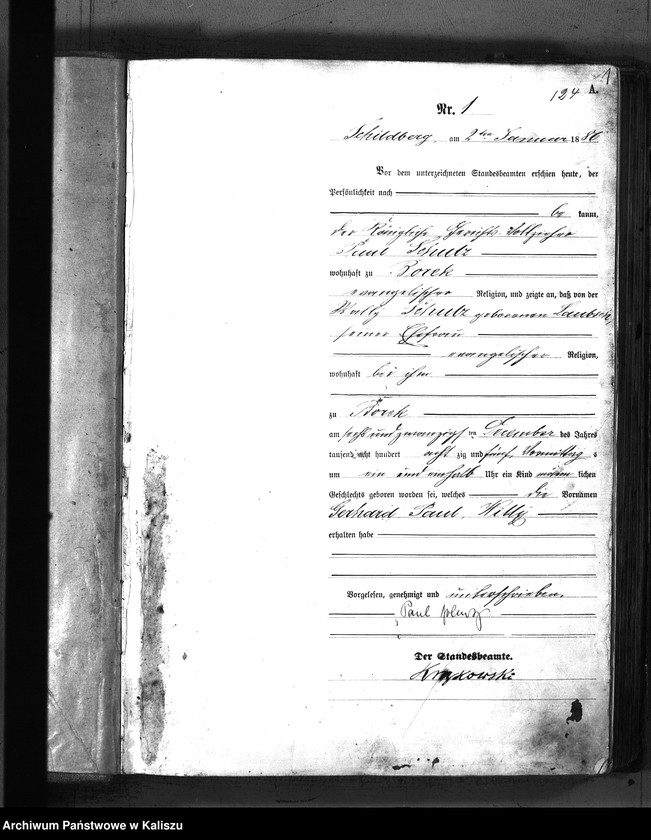 1
124 A.
Nr. 1
Schildberg, am 2ten Januar 1886
Vor dem unterzeichneten Standesbeamten erschien heute, der
Persönlichkeit nach
be kannt,
der Königliche Gerichts-Vollzieher
Paul Schulz
wohnhaft zu Borek
evangelischer Religion, und zeigte an, daß von der
Wally Schulz geborenen
seiner Ehefrau
evangelischer Religion,
wohnhaft bei ihm
zu Borek
am sechsundzwanzigsten Dezember des Jahres
tausend acht hundert acht zig und fünf Vormittags
um ein und einhalb Uhr ein Kind männlichen
Geschlechts geboren worden sei, welches die Vornamen
Gerhard Paul Willy
erhalten habe
Vorgelesen, genehmigt und unterschrieben.
Paul Schulz
Der Standesbeamte.
Archiwum Państwowe w Kaliszu